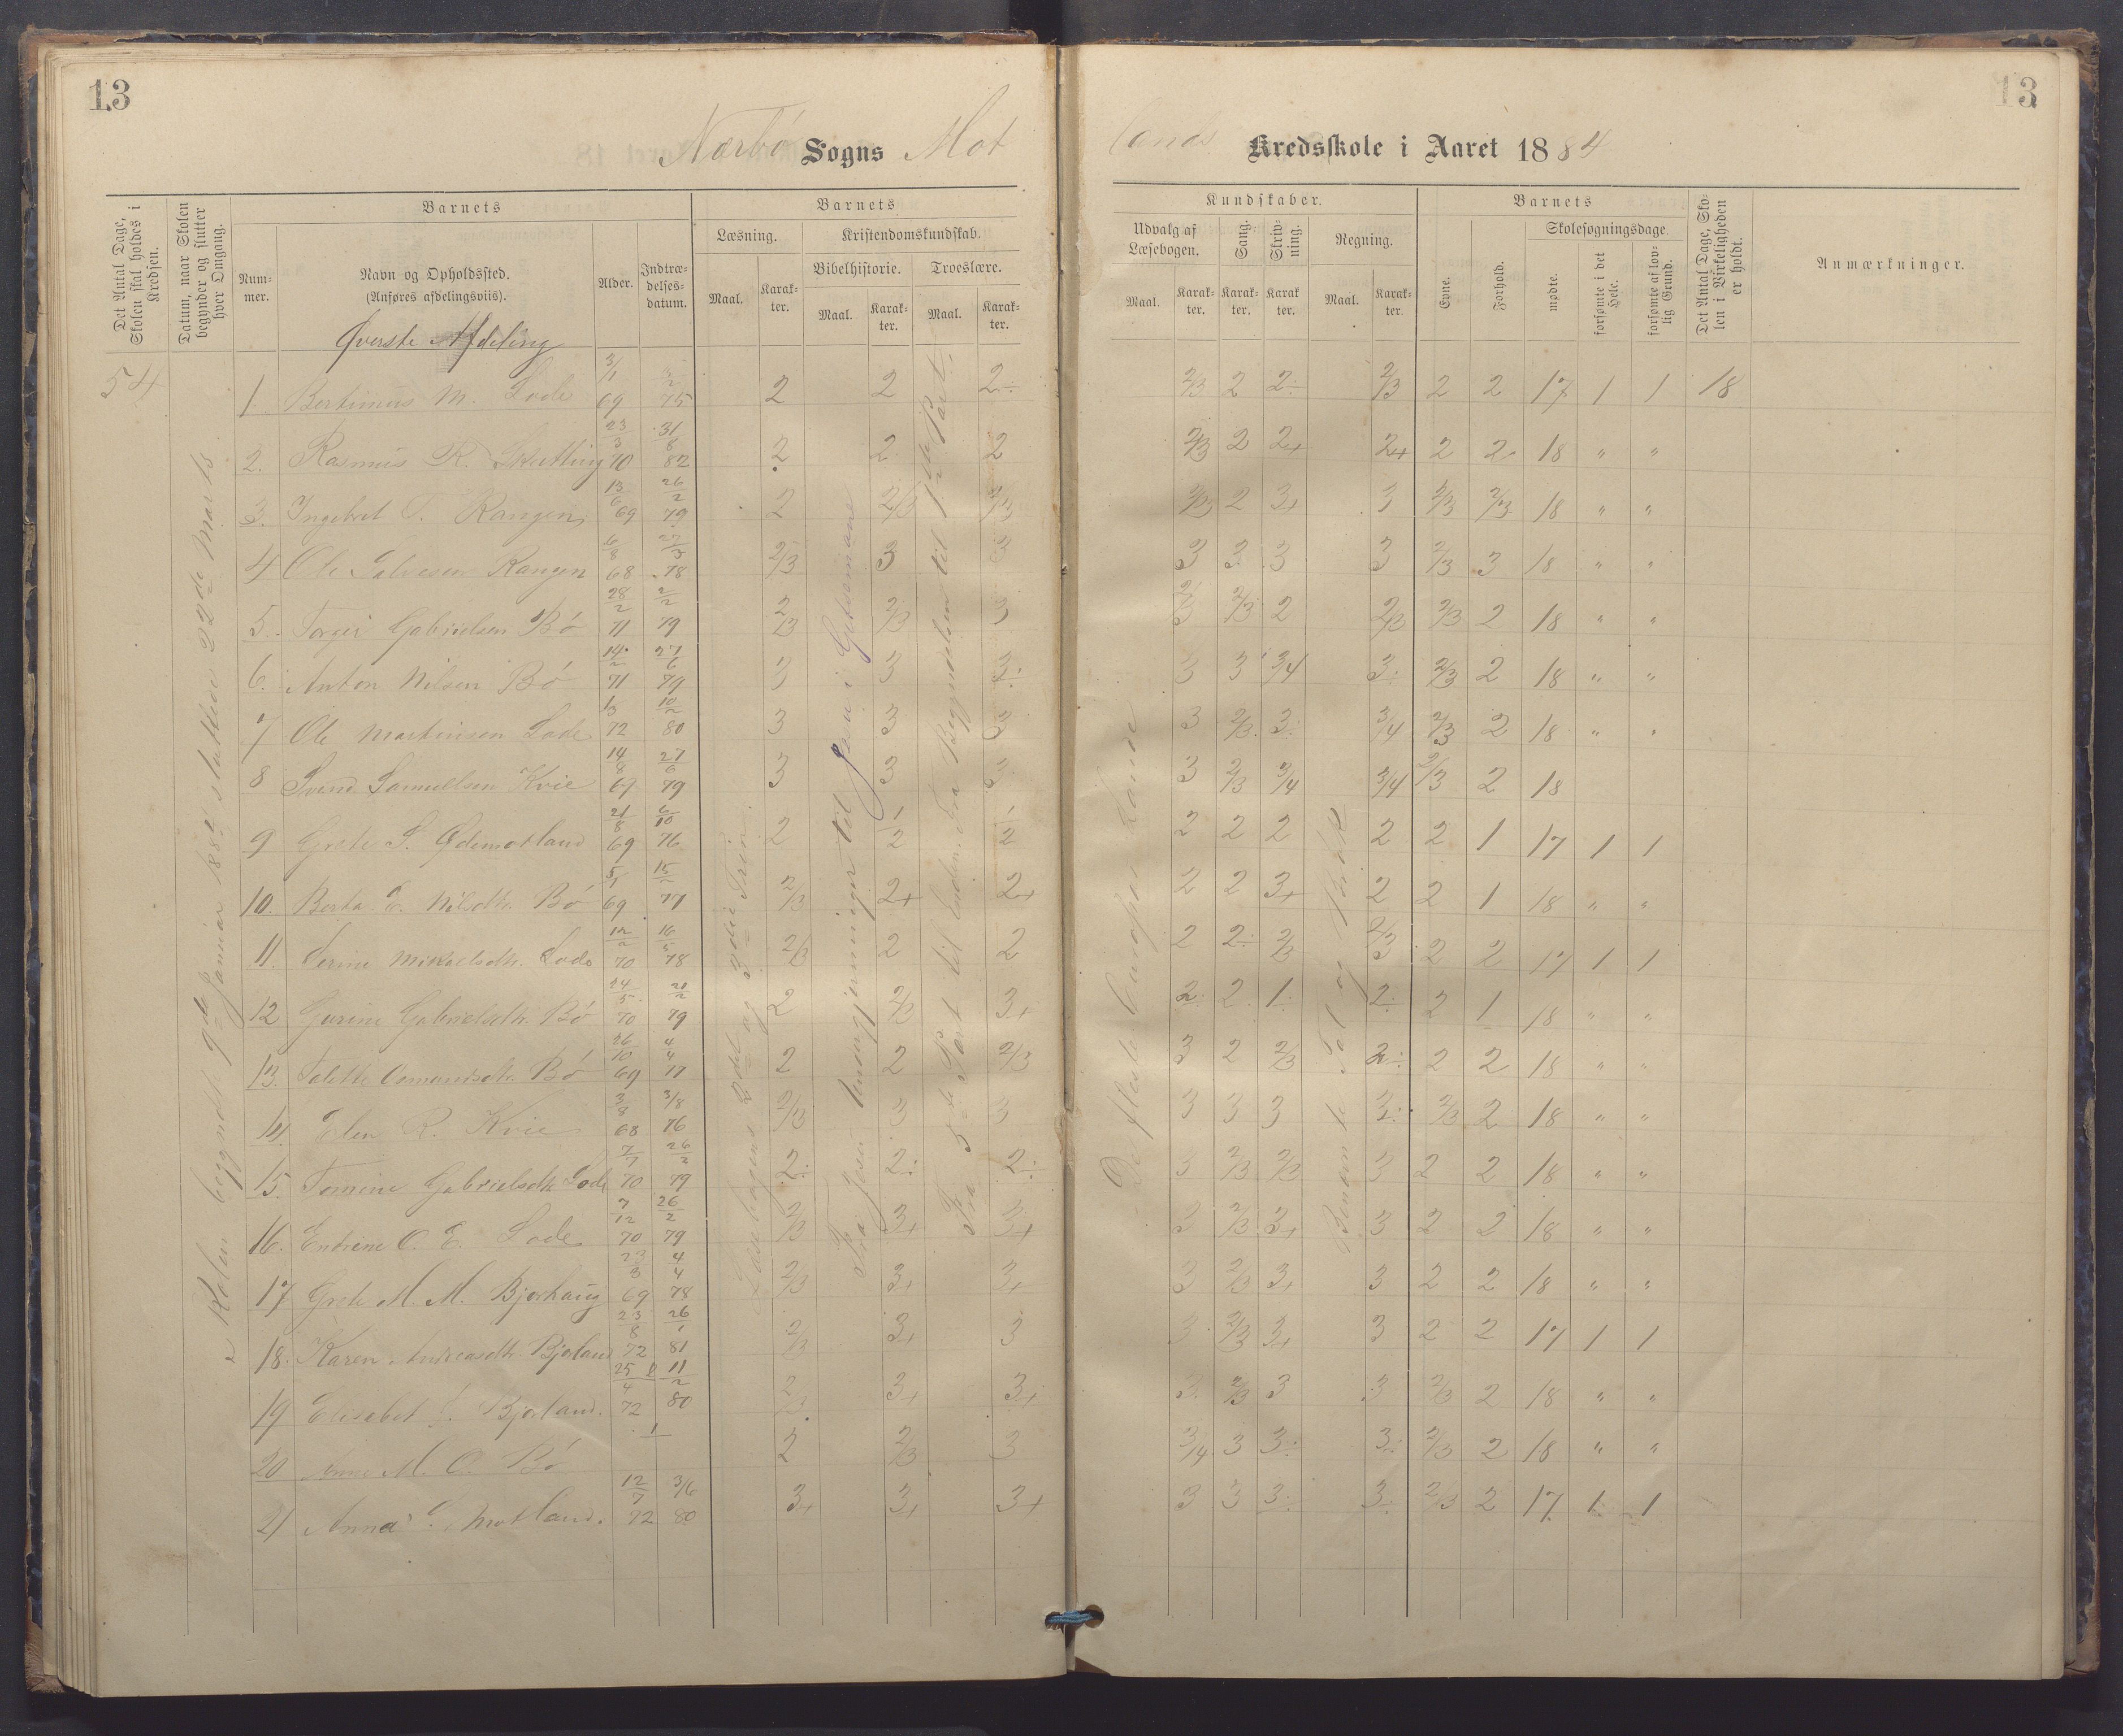 13
13
Nærbø Sogns Mot
lands Kredsskole i Aaret 1884
Det Antal Dage, Skolen skal holdes i Kredsen.
Datum, naar Skolen begynder og slutter hver Omgang.
Barnets
Nummer.
Navn og Opholdssted.
(Anføres afdelingsviis).
Alder.
Indtrædelsesdatum.
Barnets
Læsning.
Maal.
Karakter.
Kristendomskundskab.
Bibelhistorie.
Maal.
Karakter.
Troeslære.
Maal.
Karakter.
Kundskaber.
Udvalg af Læsebogen.
Maal.
Karakter.
Sang.
Karakter.
Skrivning.
Karakter.
Regning.
Maal.
Karakter.
Barnets
Evne.
Forhold.
Skolesøgningsdage.
mødte.
forsømte i det Hele.
forsømte af lovlig Grund.
Det Antal Dage, Skolen i Virkeligheden er holdt.
Anmærkninger.
Øverste Afdeling
54
Skolen begyndt 9de Januar 1884 sluttede 22de Marts
Læsebogens 2det og 3die Trin.
Fra Jesu Undergjerninger til Jesus i Getsemane
Fra 3die Part til Enden. Fra Begyndelsen til 1ste Part.
De fleste europas Lande
Benævnte Tal og Brøk
1. Bertinius M. Lode 3/1 69 75 2 2 2÷ 2/3 2 2÷ 2/3 2 2 17 1 1 18
2. Rasmus R. Skutting 23/3 70 31/8 82 2 2 2 2/3 2 2+ 2+ 2 2 18 " "
3. Ingebret T. Rangen 13/6 69 26/2 79 2 2/3 2/3 2/3 2 3+ 3 2/3 2/3 18 " "
4 Ole Salvesen Rangen 6/8 68 78 2/3 3 3 3 3 3 3 2/3 3 18 " "
5. Torger Gabrielsen Bø 28/2 71 2/2 79 2/3 2/3 3 2/3 2/3 2 2/3 2/3 2 18 " "
6. Anton Nilsen Bø 14/2 71 27/6 79 3 3 3÷ 3 3 3/4 3÷ 2/3 2 18 " "
7 Ole Martinsen Lode 72 10/2 80 3 3 3 3 2/3 3÷ 3/4 2/3 2 18 " "
8 Svend Samuelsen Kvie 14/8 69 27/6 79 3 3 3 3 2/3 3/4 3/4 2/3 2 18
9 Grete S. Ødemotland 21/8 69 6/10 76 2 1/2 1/2 2 2 2 2 2 1 17 1 1
10. Berta E. Nilsdtr. Bø 5/1 69 15/2 77 2/3 2+ 2+ 2 2 3+ 2 2 1 18 " "
11. Serine Mikaelsdtr. Lode 12/2 70 16/5 78 2/3 2 2 2 2÷ 2/3 2/3 2 2 17 1 1
12 Gurine Gabrielsdtr. Bø 24/5 70 21/2 79 2 2/3 3+ 2÷ 2 1÷ 2÷ 2 1 18 " "
13. Talette Osmundsdtr. Bø 26/10 69 4/4 77 2 2 2/3 3 2 2/3 2÷ 2 2 18 " "
14. Elen R. Kvie 3/8 68 3/8 76 2/3 3 3 3 3 3 3÷ 2/3 2 18 " "
15. Tomine Gabrielsdtr. Lode 7/7 70 26/2 79 2÷ 2÷ 2÷ 3 2/3 2/3 3 2 2 18 " "
16. Endrine O. E. Lode 7/12 70 26/2 79 2/3 3+ 3+ 3 2/3 3+ 3 2 2 18 " "
17 Grete M. M. Bjorhaug 23/3 69 4/4 78 2/3 3+ 3+ 3 2/3 3+ 3 2 2 18 " "
18. Karen Andreasdtr. Bjorland 23/8 72 26/1 81 2/3 3+ 3 3 2/3 3+ 3 2 2 17 1 1
19 Elisabet Bjorland. 25/4 72 11/2 80 2/3 3+ 3+ 3 2/3 3 3 2/3 2 18 " "
20 M. O. Bø 1 2 2/3 3 3/4 3 3÷ 3÷ 2/3 2 18 " "
21 Anna Motland. 12/7 72 3/6 80 3+ 3+ 3+ 3 3 3÷ 3÷ 2/3 2 17 1 1